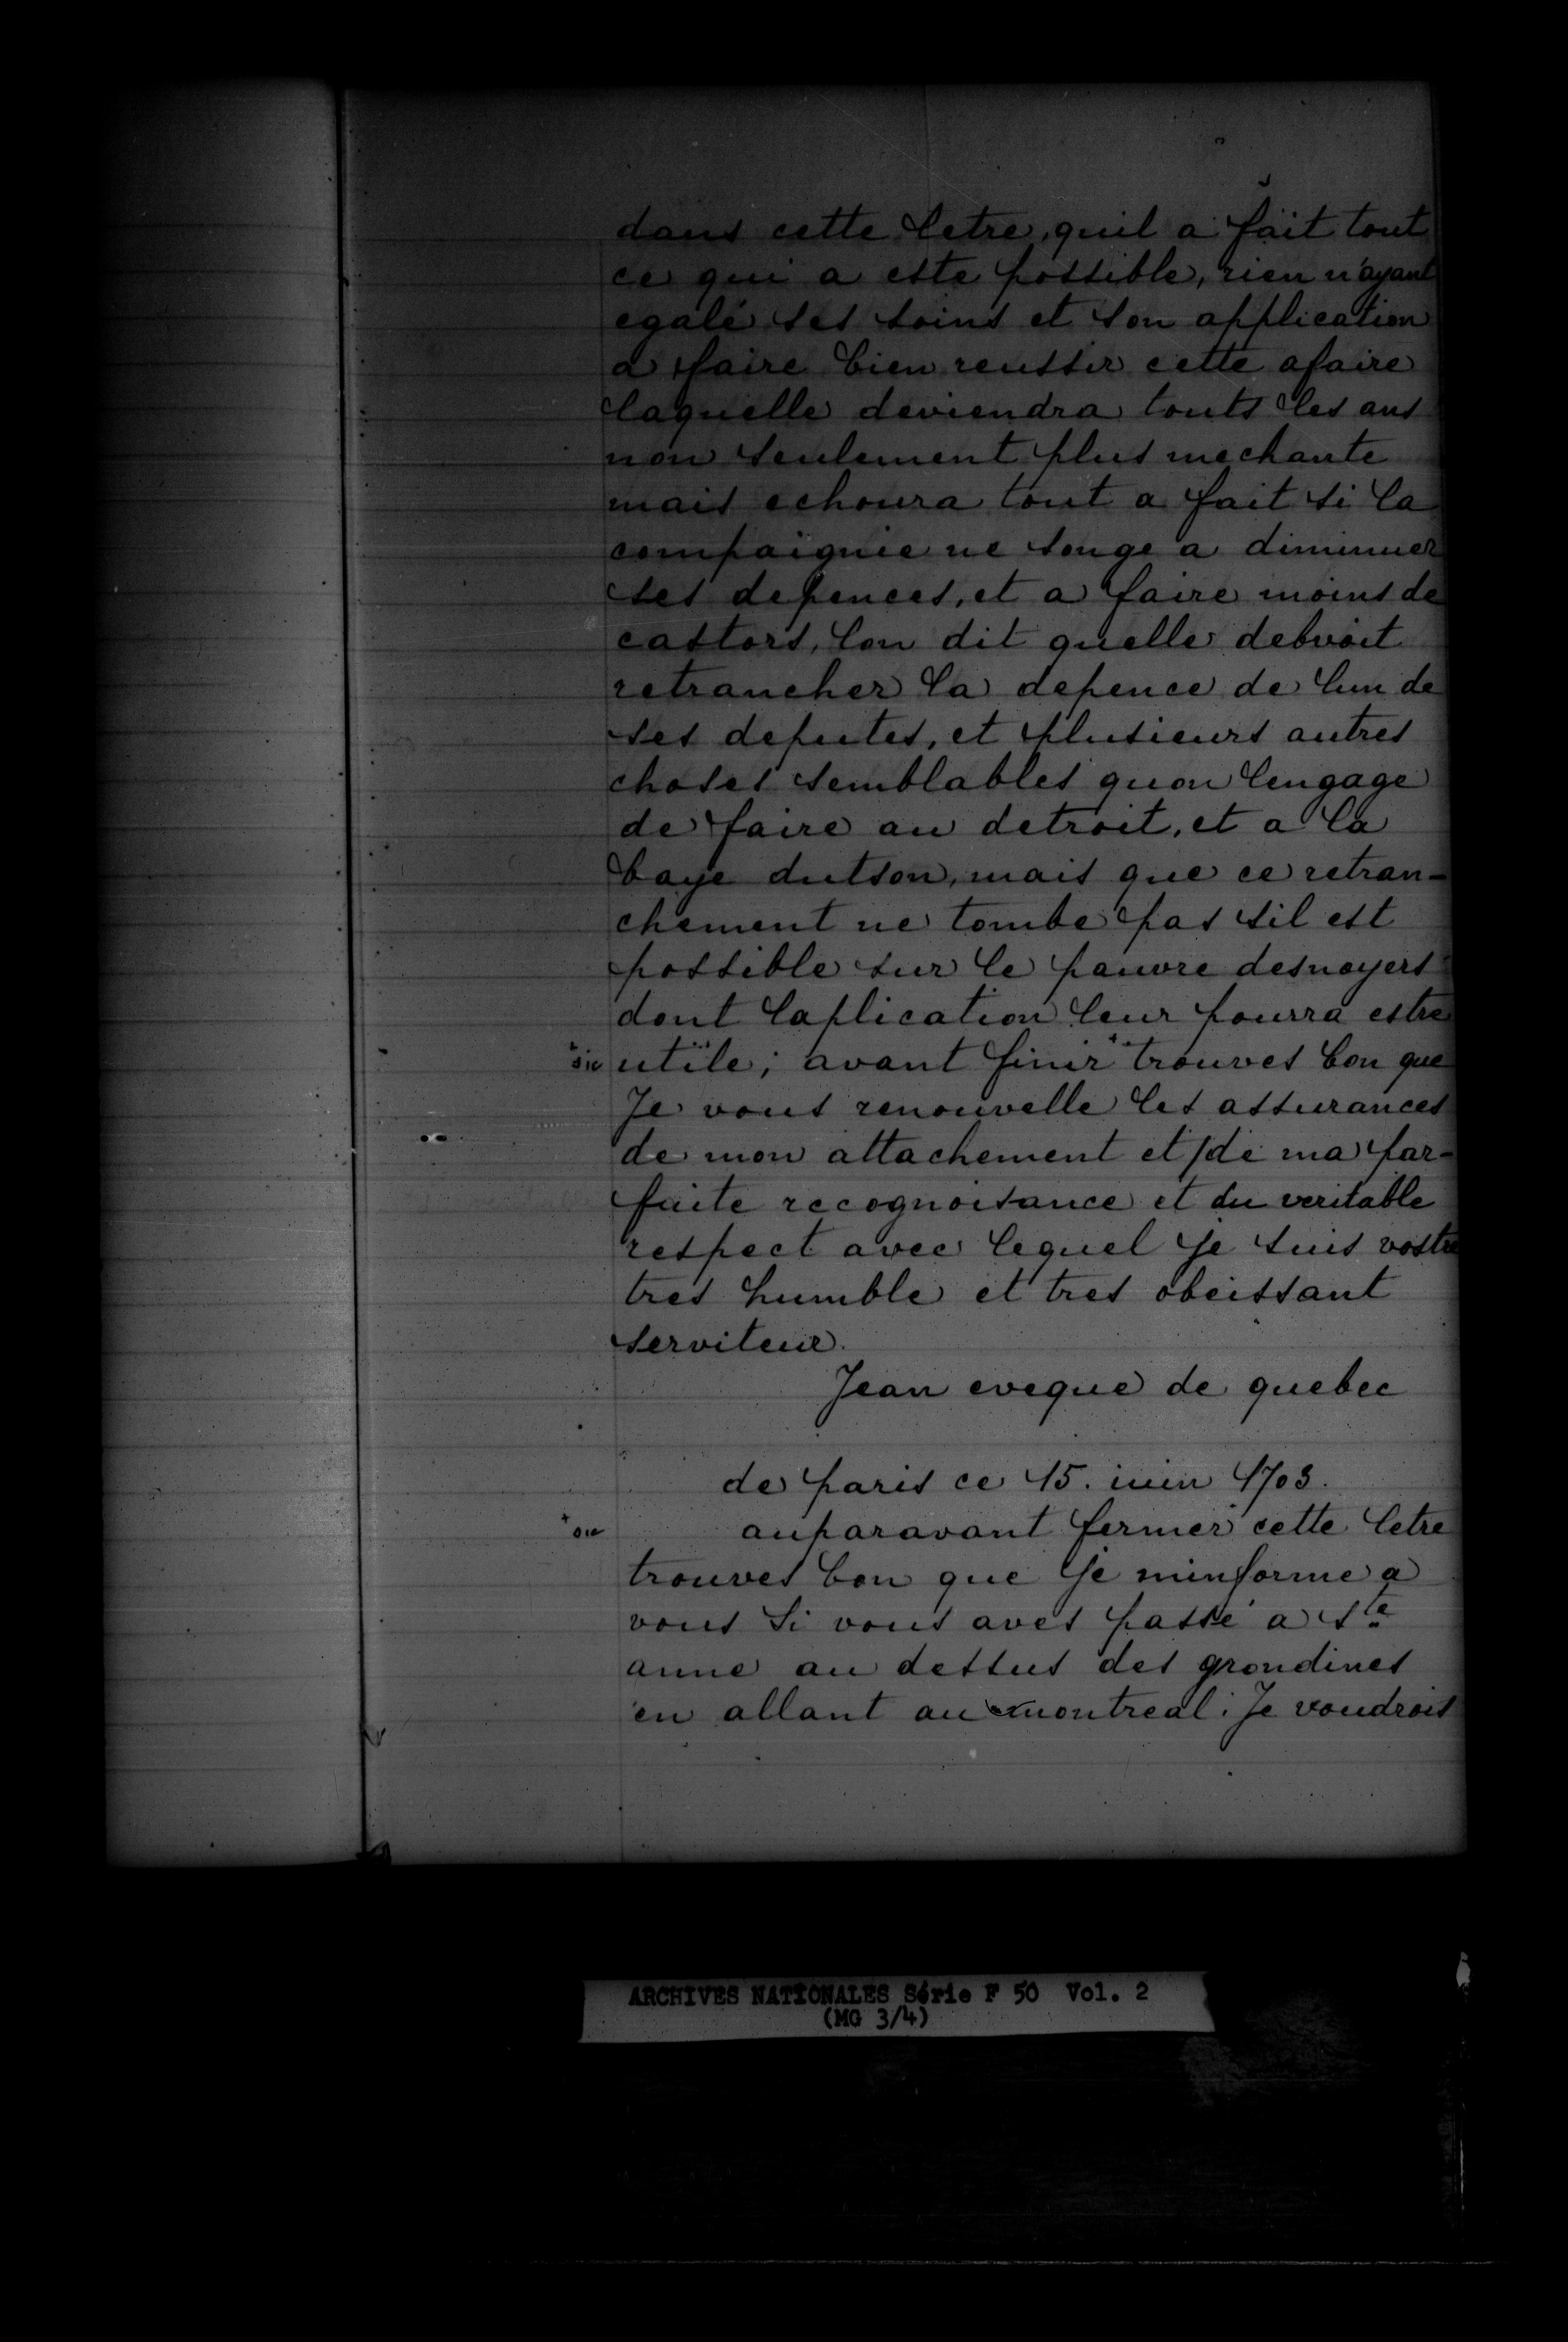 dans cette letre, quil a fait tout
ce qui a este possible, rien n'ayant
egalé ses soins et son application
a faire bien reussir cette afaire
laquelle deviendra touts les ans
non seulement plus mechante
mais echoura tout a fait si la
compaignie ne songe a diminuer
ses depences, et a faire moins de
castors, lon dit quelle debvoit
retrancher la depence de lun de
ses deputes, et plusieurs autres
choses semblables quon lengage
de faire au detroit, et a la
baye dutson, mais que ce retran-
chement ne tombe pas sil est
possible sur le pauvre desnoyers
dont laplication leur pourra estre
+ sic utile; avant finir + trouves bon que
Je vous renouvelle les assurances
de mon attachement et de ma par-
faite recognoisance et du veritable
respect avec lequel je suis vostre
tres humble et tres obeissant
serviteur.
Jean eveque de quebec
de paris ce 15. iuin 1703.
+ sic auparavant fermer cette letre
trouves bon que je minforme a
vous si vous aves passé a ste
anne au dessus des grondines
en allant au montreal; Je voudrois
ARCHIVES NATIONALES Série F 50 Vol. 2
(MG 3/4)